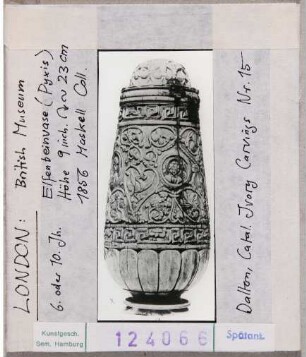 LONDON: British Museum
6. oder 10. Jh.
Elfenbeinvase (Pyxis)
Höhe 9 inch. ~ 23 cm
1856 Maskell Coll.
Dalton, Catal. Ivory Carvings Nr. 15
Kunstgesch.
Sem. Hamburg
124066
Spätant.